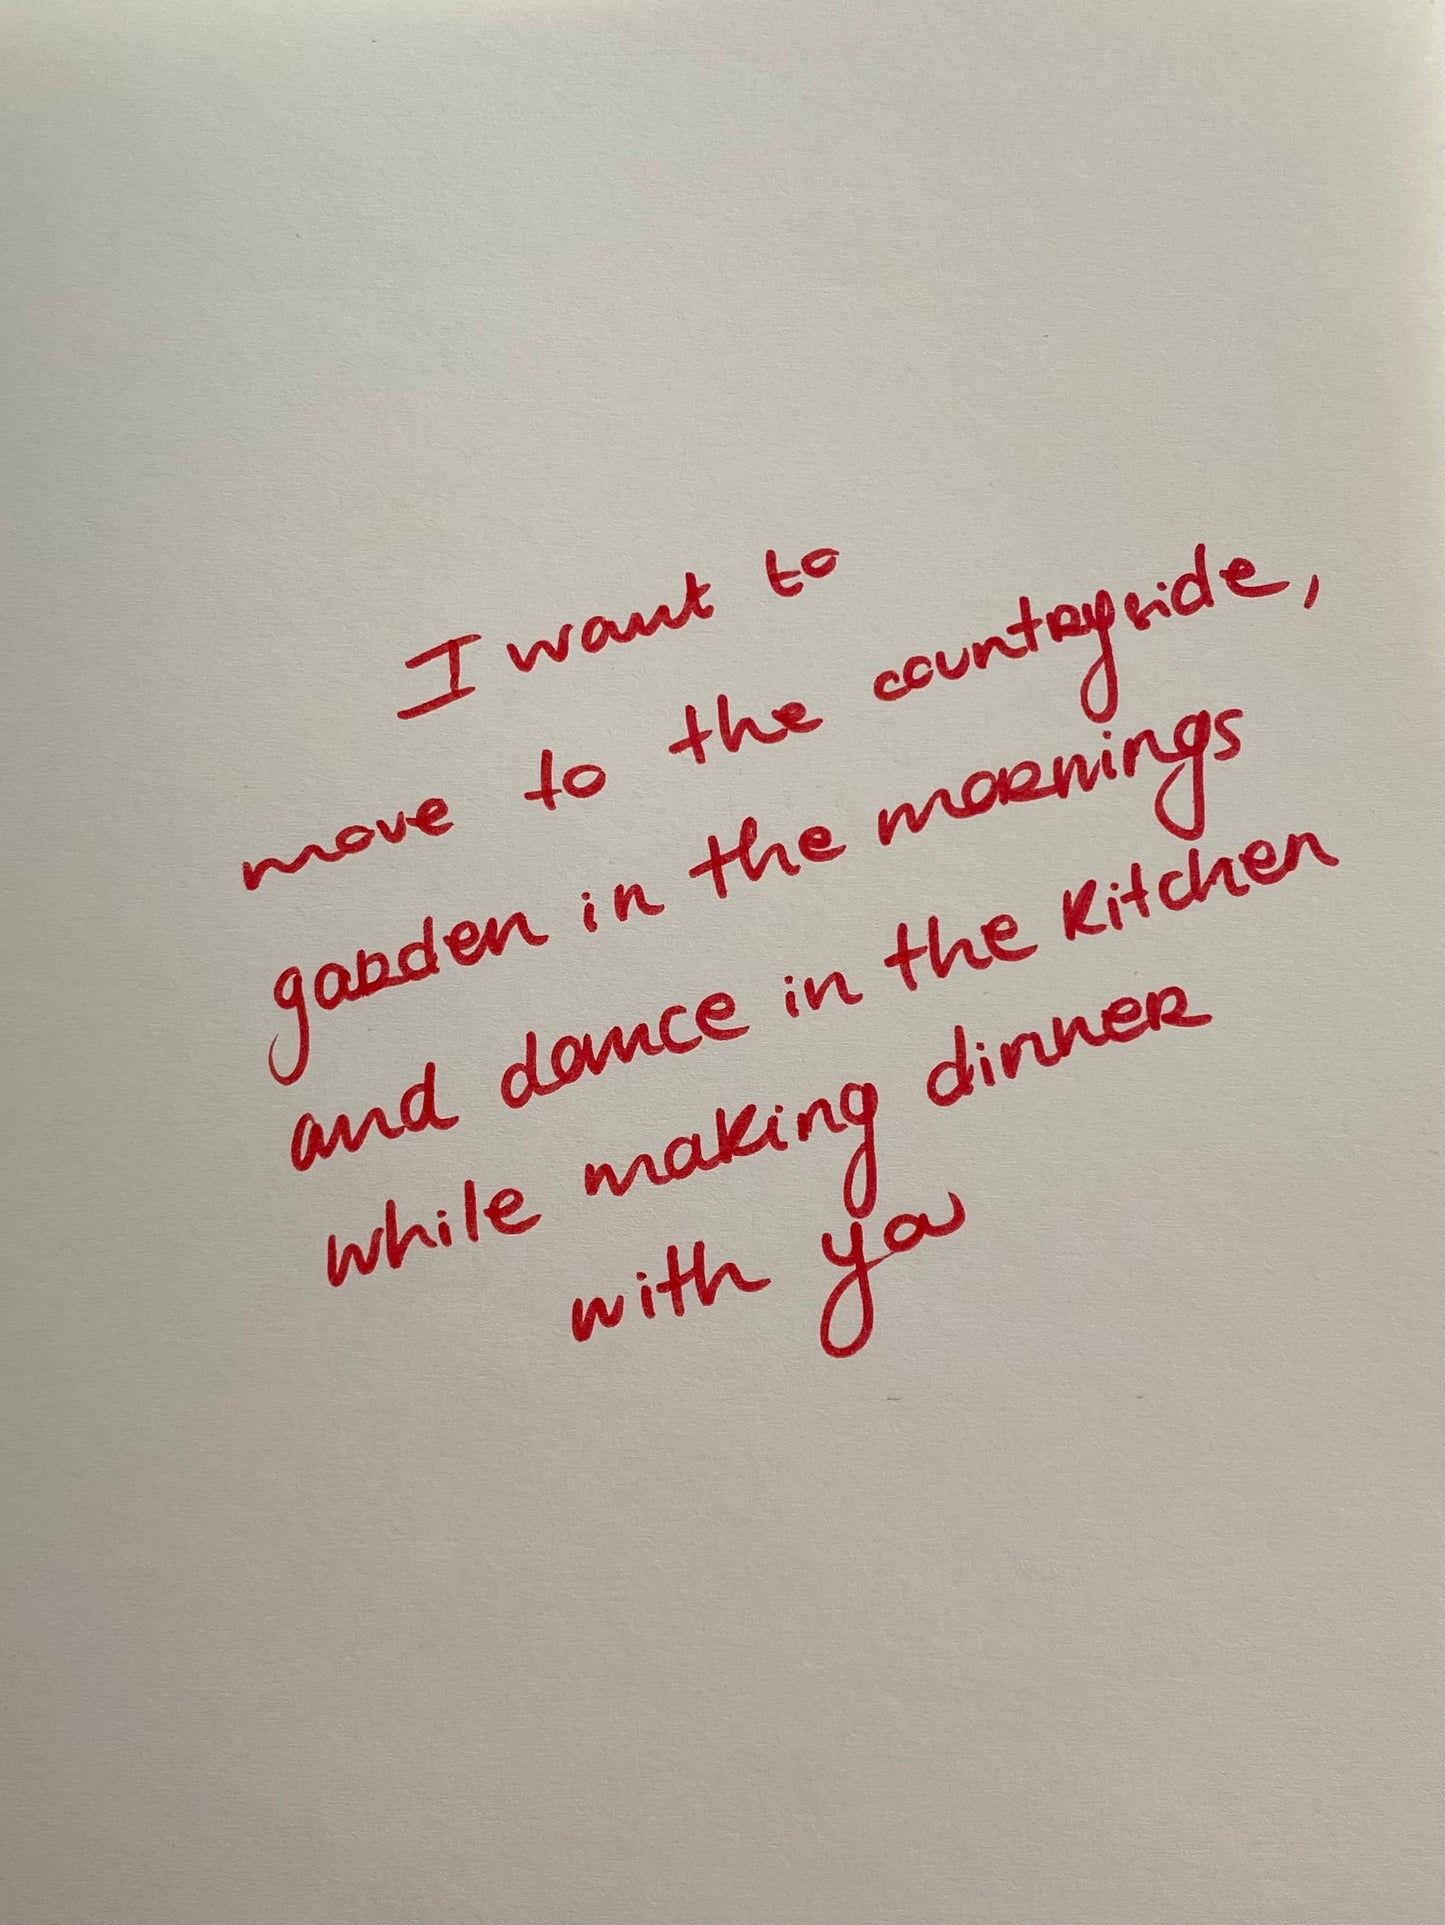 I want to
move to the countryside,
garden in the mornings
and dance in the kitchen
while making dinner
with you